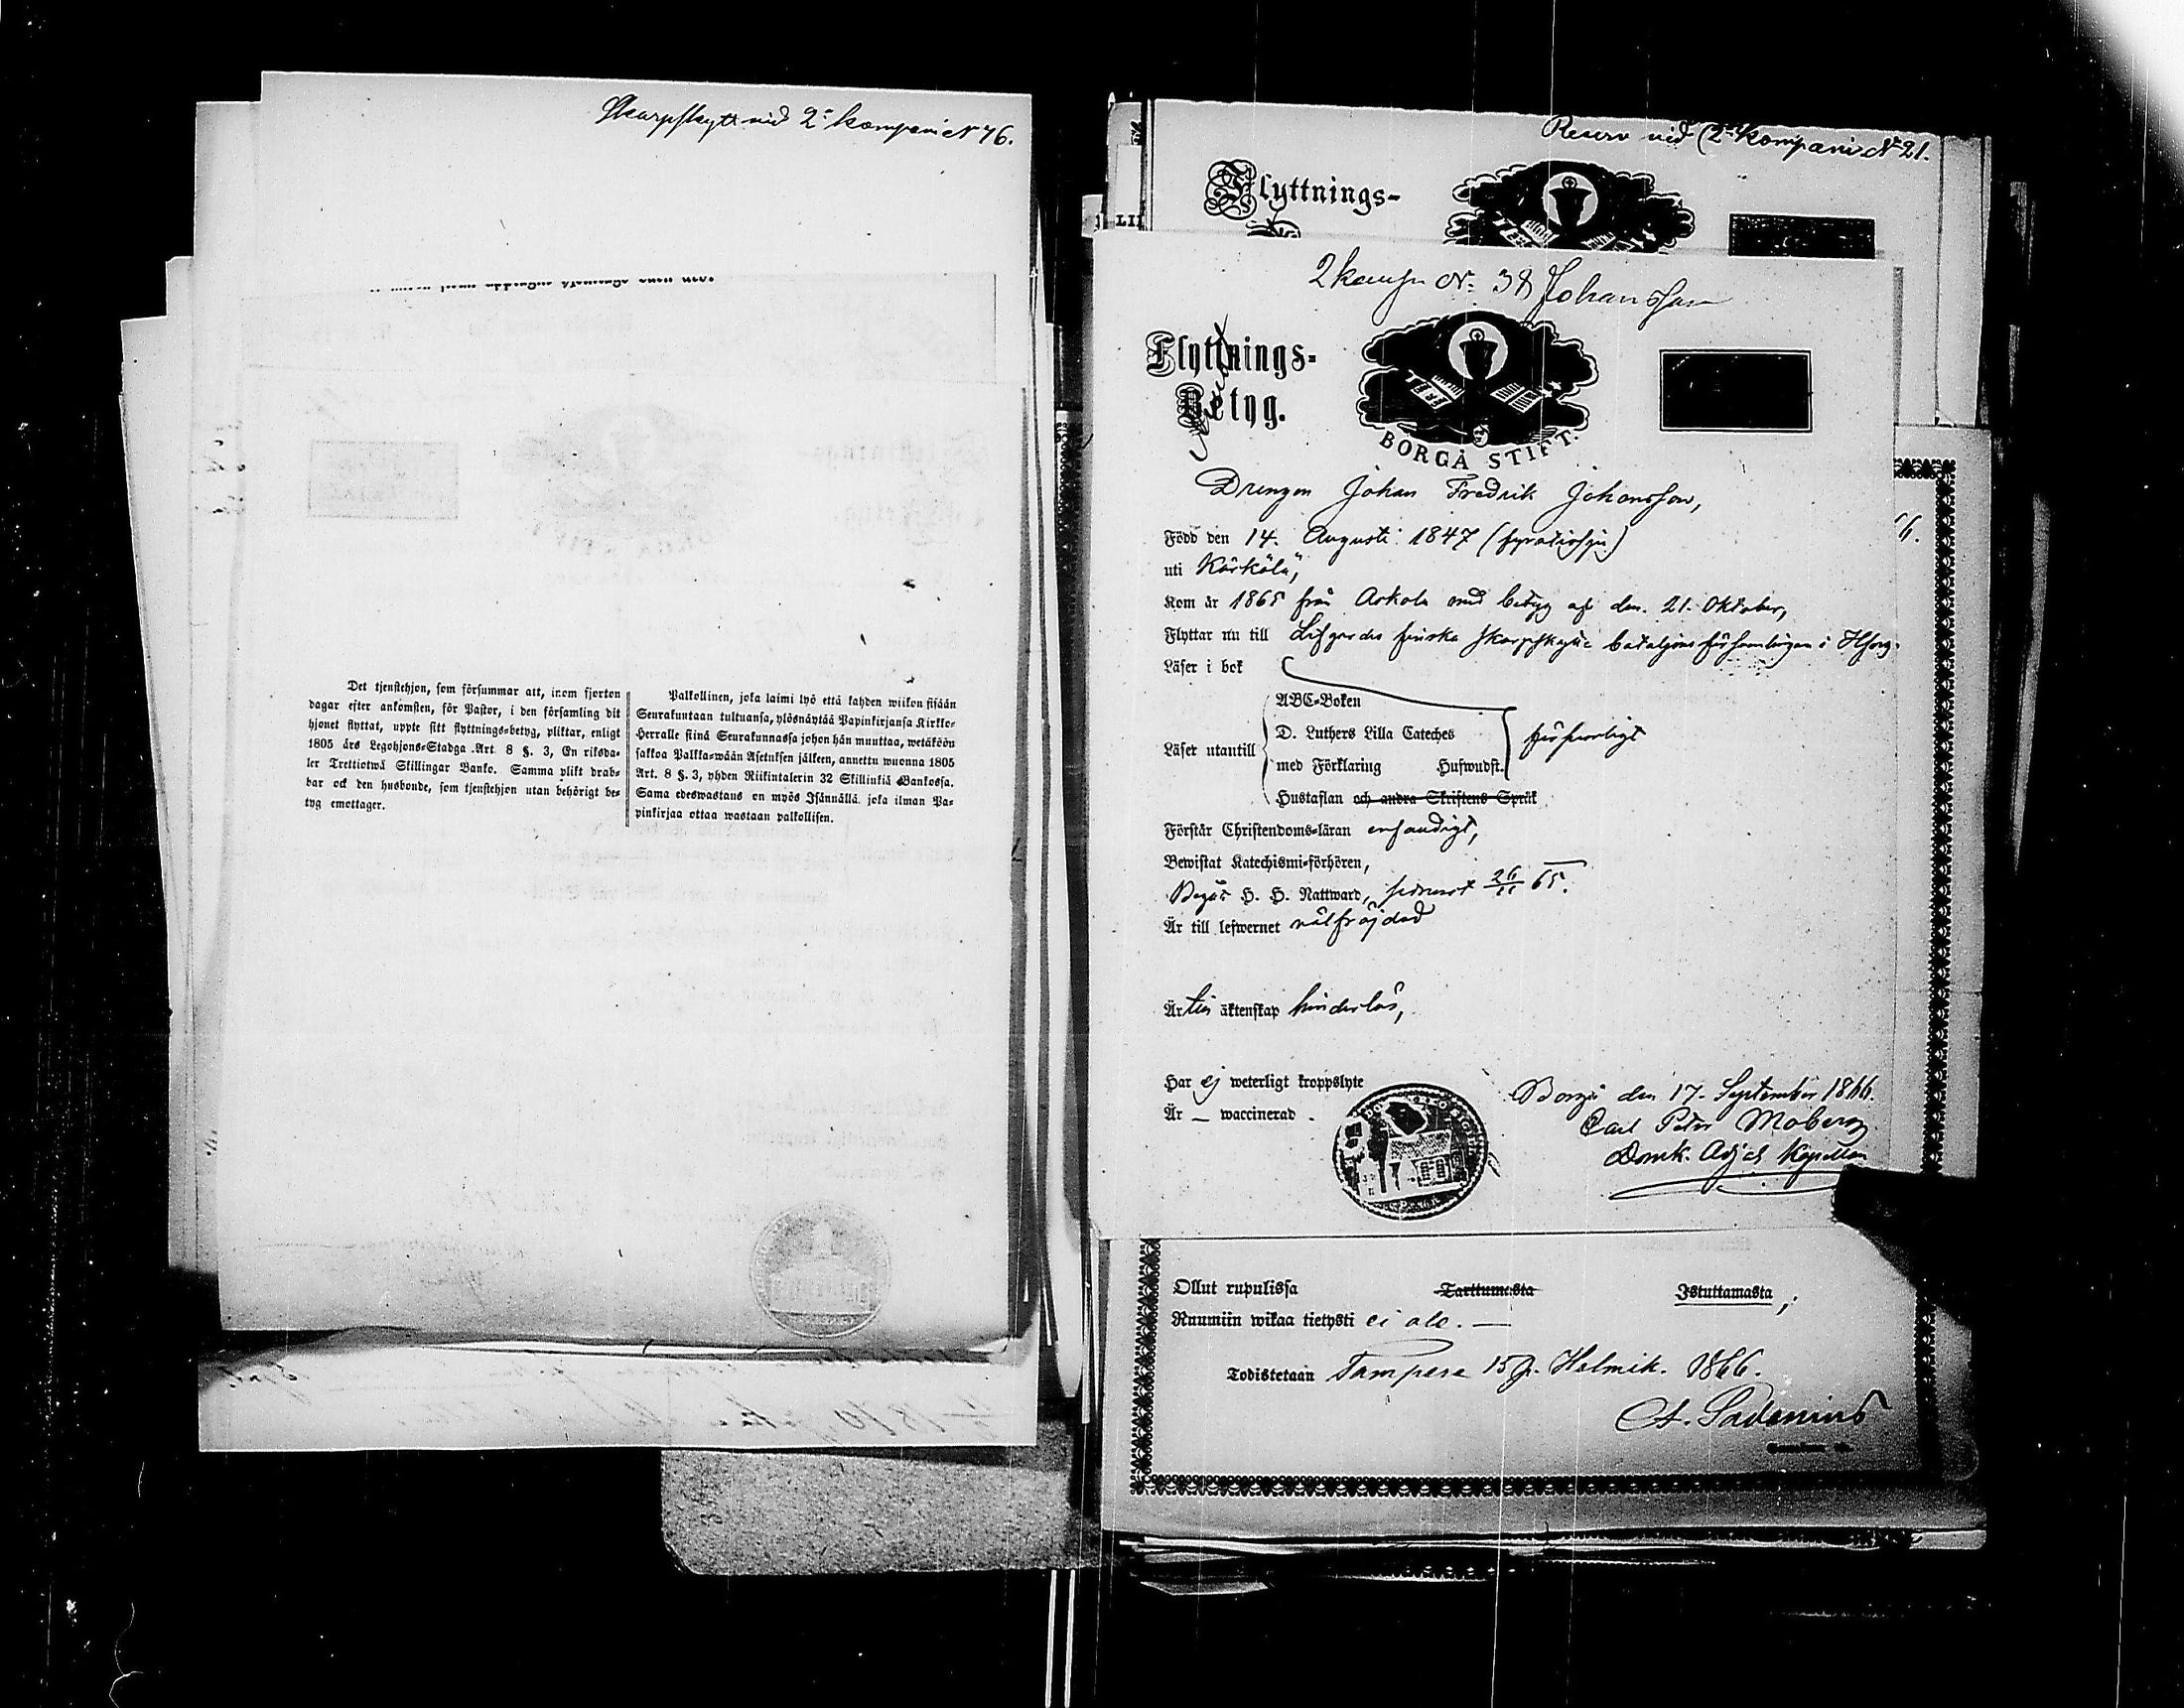 Skarpskytt vid 2:a kompani N 76.
Det tjenstehjon, som försummar att, inom fjorton
dagar efter ankomsten, för Pastor, i den församling dit
hjonet flyttat, uppte sitt flyttnings-betyg, pliktar, enligt
1805 års Legohjons-Stadga Art. 8 §. 3, En riksda-
ler Trettiotwå Skillingar Banko. Samma plikt drab-
bar ock den husbonde, som tjenstehjon utan behörigt be-
tyg emottager.
Palkollinen, joka laimi lyö että kahden wiikon sisään
Seurakuntaan tultuansa, ylösnäytää Papinkirjansa Kirkko-
Herralle siinä Seurakunnassa johon hän muuttaa, wetäköön
sakkoa Palkka-wään Asetuksen jälkeen, annettu wuonna 1805
Art. 8 §. 3, yhden Riikintalerin 32 Skillinkiä Bankossa.
Sama edeswastaus on myös Isännällä, joka ilman Pa-
pinkirjaa ottaa wastaan palkollisen.
Reserv vid 2:a Kompani N 21.
Flyttnings-
2 komp N: 38 Johansson
Flyttnings-
Betyg.
BORGÅ STIFT.
Drengen Johan Fredrik Johansson,
Född den 14. Augusti 1847 (fyratiosju)
uti Kärkölä,
Kom år 1865 från Askola med betyg af den 21. Oktober,
Flyttar nu till Lifgardes finska skarpskytte bataljons församlingen i Hfors.
Läser i bok
ABC-Boken
D. Luthers Lilla Cateches
Läser utantill
med Förklaring Hufwudst.
försvarligt
Hustaflan och andra Skriftens Språk
Förstår Christendoms-läran enfaldigt,
Bewistat Katechismi-förhören,
Begår H. H. Nattward, senast 26/11 65.
Är till lefwernet välfräjdad
Är till äktenskap hinderlös,
Har ej weterligt kroppslyte
Är — waccinerad.
Borgå den 17. September 1866.
Carl Peter Moberg
Domk. Adj. Kapellan
Ollut rupulissa Tarttumasta Istuttamasta,;
Ruumiin wikaa tietysti ei ole. —
Todistetaan Tampere 15 p. Helmik. 1866.
A. Sadenius